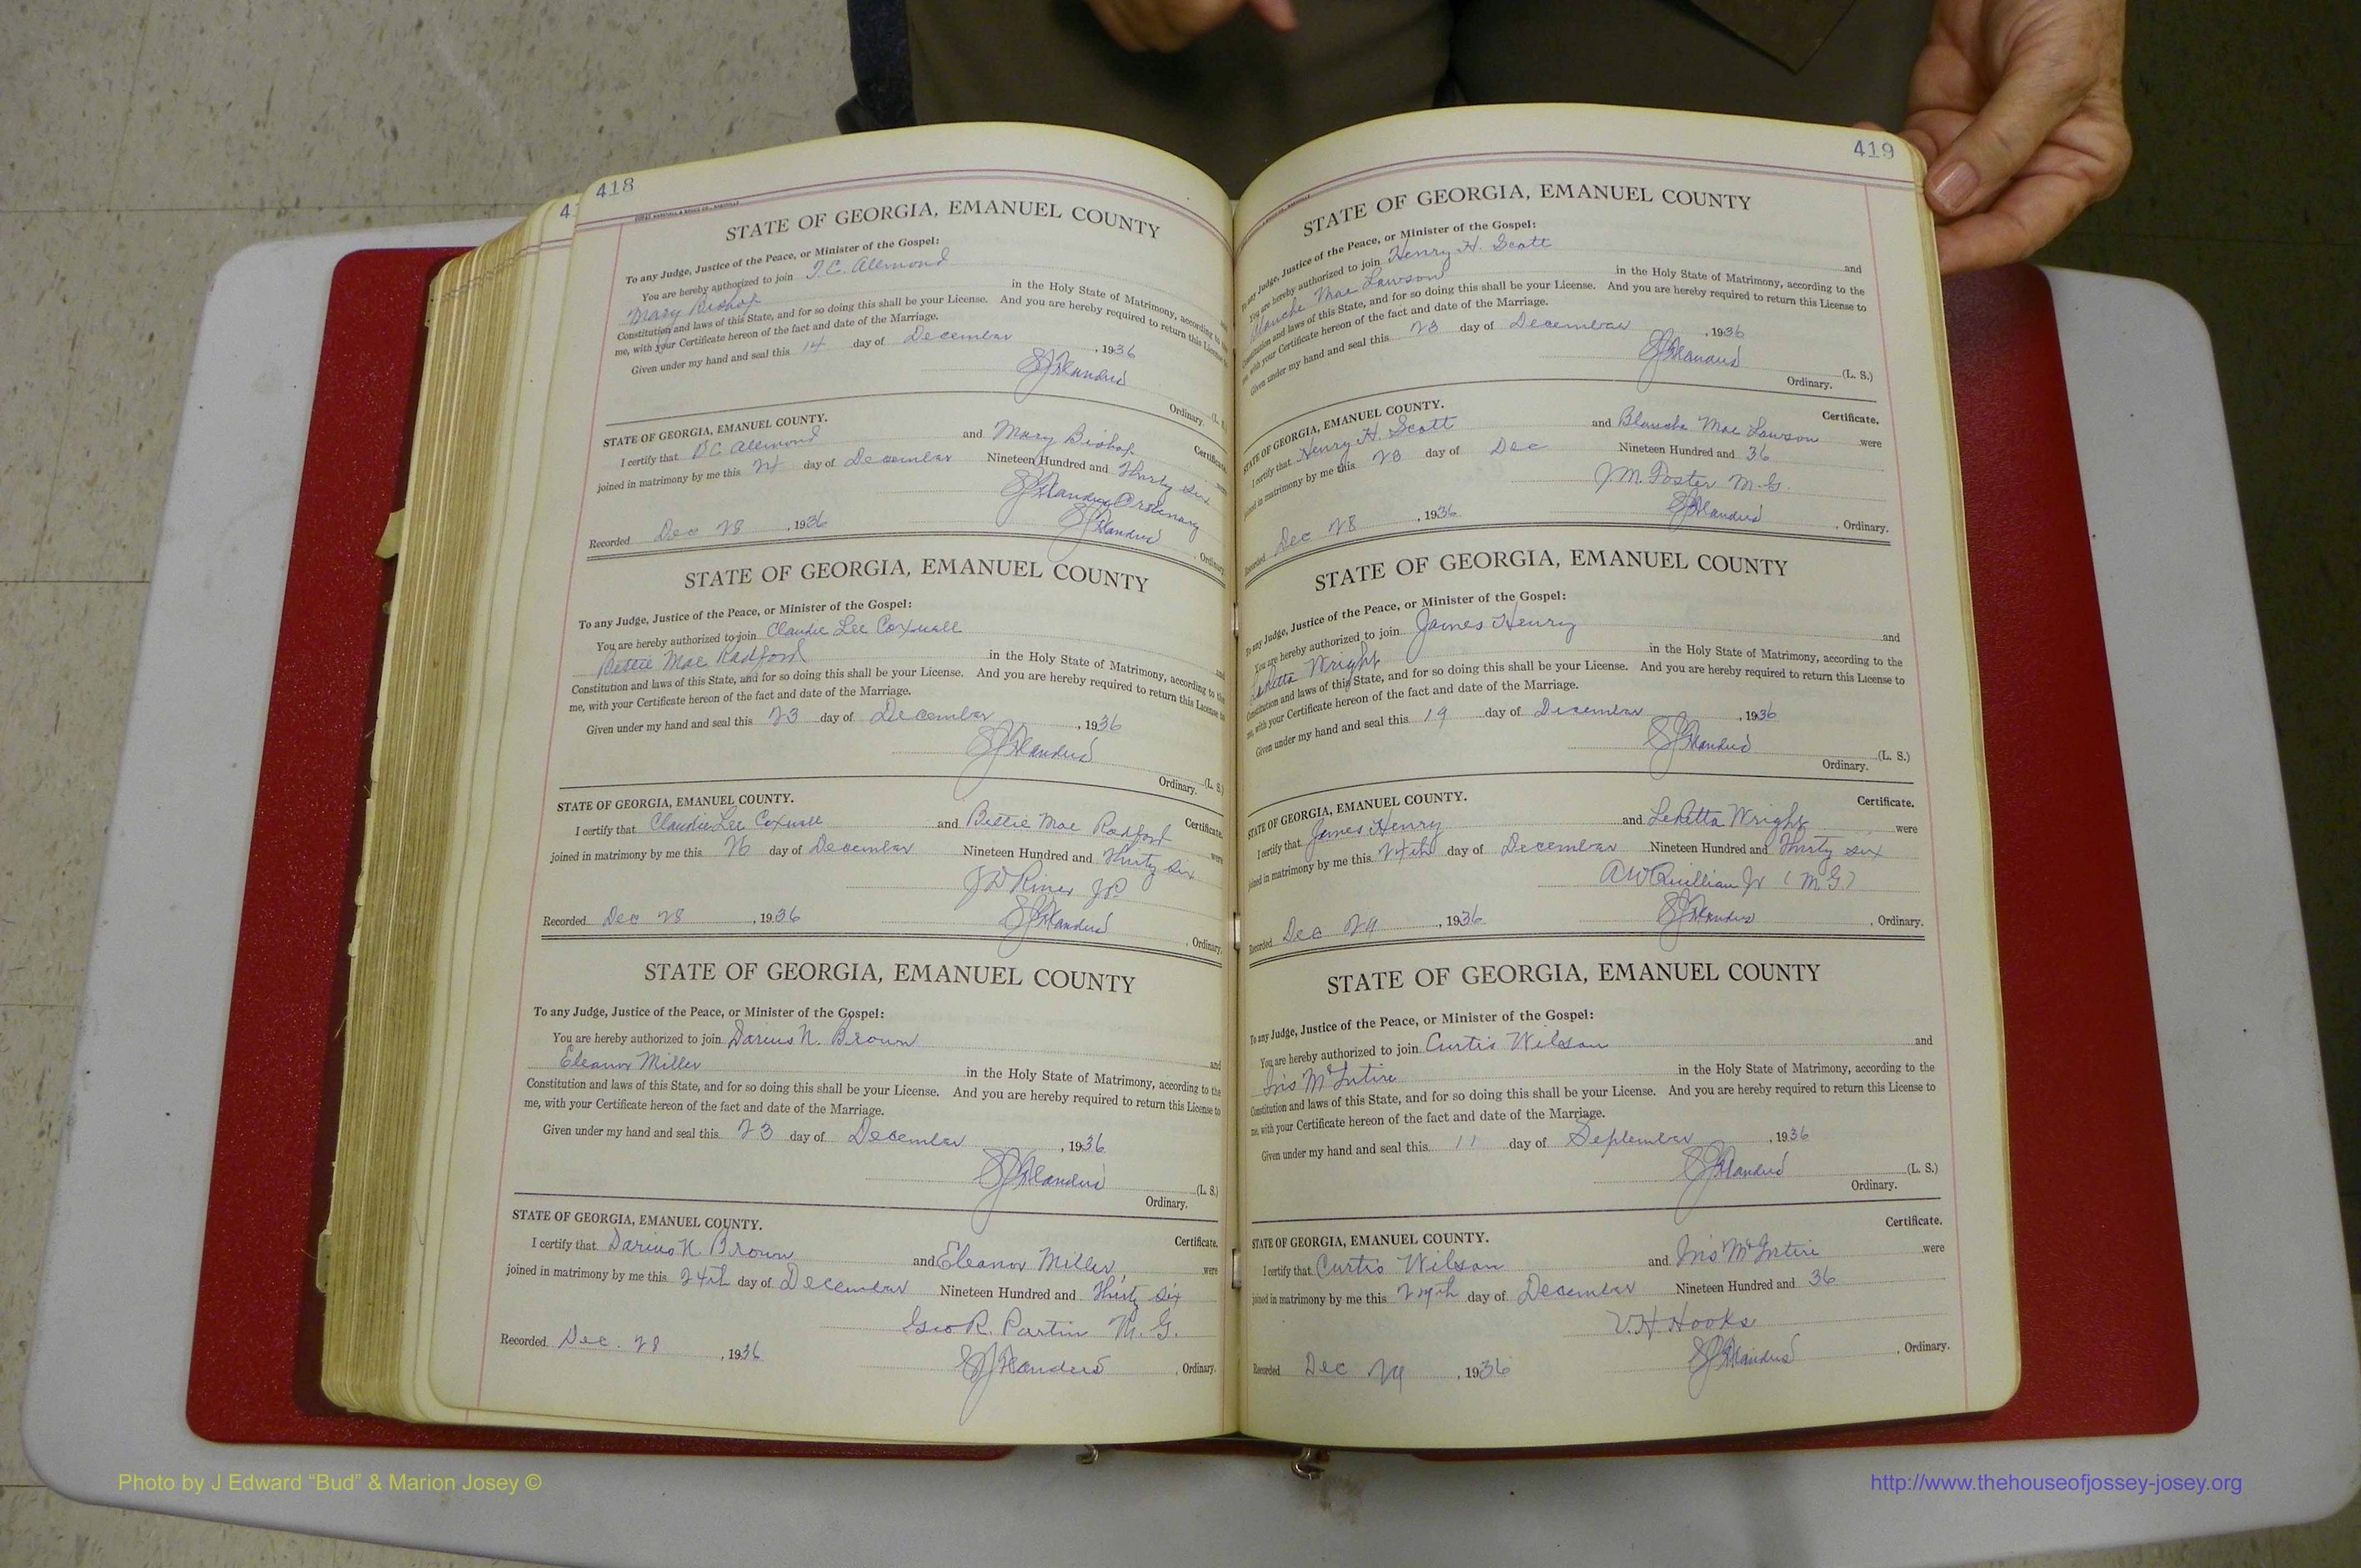 418
STATE OF GEORGIA, EMANUEL COUNTY
To any Judge, Justice of the Peace, or Minister of the Gospel:
You are hereby authorized to join J. C. Allmond
Mary Bishop in the Holy State of Matrimony, according to the
Constitution and laws of this State, and for so doing this shall be your License. And you are hereby required to return this License to
me, with your Certificate hereon of the fact and date of the Marriage.
Given under my hand and seal this 14 day of December, 1936
Ordinary. (L. S.)
STATE OF GEORGIA, EMANUEL COUNTY. Certificate.
I certify that Allmond and Mary Bishop were
joined in matrimony by me this day of December Nineteen Hundred and Thirty six
Ordinary
Recorded Dec 28, 1936, Ordinary.
STATE OF GEORGIA, EMANUEL COUNTY
To any Judge, Justice of the Peace, or Minister of the Gospel:
You are hereby authorized to join Claudie Lee Coxwell and
Bettie Mae Radford in the Holy State of Matrimony, according to the
Constitution and laws of this State, and for so doing this shall be your License. And you are hereby required to return this License to
me, with your Certificate hereon of the fact and date of the Marriage.
Given under my hand and seal this 23 day of December, 1936
S J Flanders
Ordinary. (L. S.)
STATE OF GEORGIA, EMANUEL COUNTY. Certificate.
I certify that Claudie Lee Coxwell and Bettie Mae Radford were
joined in matrimony by me this 26 day of December Nineteen Hundred and Thirty six
J D Riner JP
Recorded Dec 28, 1936 S J Flanders, Ordinary.
STATE OF GEORGIA, EMANUEL COUNTY
To any Judge, Justice of the Peace, or Minister of the Gospel:
You are hereby authorized to join Darius N. Brown and
Eleanor Miller in the Holy State of Matrimony, according to the
Constitution and laws of this State, and for so doing this shall be your License. And you are hereby required to return this License to
me, with your Certificate hereon of the fact and date of the Marriage.
Given under my hand and seal this 23 day of December, 1936
S J Flanders (L. S.)
Ordinary.
STATE OF GEORGIA, EMANUEL COUNTY. Certificate.
I certify that Darius N. Brown and Eleanor Miller were
joined in matrimony by me this 24th day of December Nineteen Hundred and Thirty six
Geo R. Partin M. G.
Recorded Dec. 28, 1936 S J Flanders, Ordinary.
419
STATE OF GEORGIA, EMANUEL COUNTY
To any Judge, Justice of the Peace, or Minister of the Gospel:
You are hereby authorized to join Henry H. Scott and
Blanche Mae Lawson in the Holy State of Matrimony, according to the
Constitution and laws of this State, and for so doing this shall be your License. And you are hereby required to return this License to
me, with your Certificate hereon of the fact and date of the Marriage.
Given under my hand and seal this 23 day of December, 1936
S J Flanders (L. S.)
Ordinary.
STATE OF GEORGIA, EMANUEL COUNTY. Certificate.
I certify that Henry H. Scott and Blanche Mae Lawson were
joined in matrimony by me this 23 day of Dec Nineteen Hundred and 36
J. M. Foster M. G.
Recorded Dec 28, 1936 S J Flanders, Ordinary.
STATE OF GEORGIA, EMANUEL COUNTY
To any Judge, Justice of the Peace, or Minister of the Gospel:
You are hereby authorized to join James Henry and
Wright in the Holy State of Matrimony, according to the
Constitution and laws of this State, and for so doing this shall be your License. And you are hereby required to return this License to
me, with your Certificate hereon of the fact and date of the Marriage.
Given under my hand and seal this 19 day of December, 1936
S J Flanders (L. S.)
Ordinary.
STATE OF GEORGIA, EMANUEL COUNTY. Certificate.
I certify that James Henry and Wright were
joined in matrimony by me this 24th day of December Nineteen Hundred and Thirty six
A W Quillian Jr (M G)
Recorded Dec 29, 1936 S J Flanders, Ordinary.
STATE OF GEORGIA, EMANUEL COUNTY
To any Judge, Justice of the Peace, or Minister of the Gospel:
You are hereby authorized to join Curtis Wilson and
Iris McIntire in the Holy State of Matrimony, according to the
Constitution and laws of this State, and for so doing this shall be your License. And you are hereby required to return this License to
me, with your Certificate hereon of the fact and date of the Marriage.
Given under my hand and seal this 11 day of September, 1936
S J Flanders (L. S.)
Ordinary.
STATE OF GEORGIA, EMANUEL COUNTY. Certificate.
I certify that Curtis Wilson and Iris McIntire were
joined in matrimony by me this day of December Nineteen Hundred and 36
V. H. Hooks
Recorded Dec 29, 1936 S J Flanders, Ordinary.
Photo by J Edward “Bud” & Marion Josey ©
http://www.thehouseofjossey-josey.org